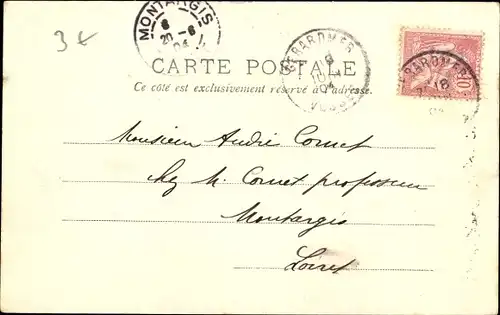 3€
MONTARGIS
8
20-6
04
GERARDMER
VOSGES
GERARDMER
18
10
CARTE POSTALE
Ce côté est exclusivement réservé à l'adresse.
Monsieur André Cornet
chez M. Cornet professeur
Montargis
Loiret